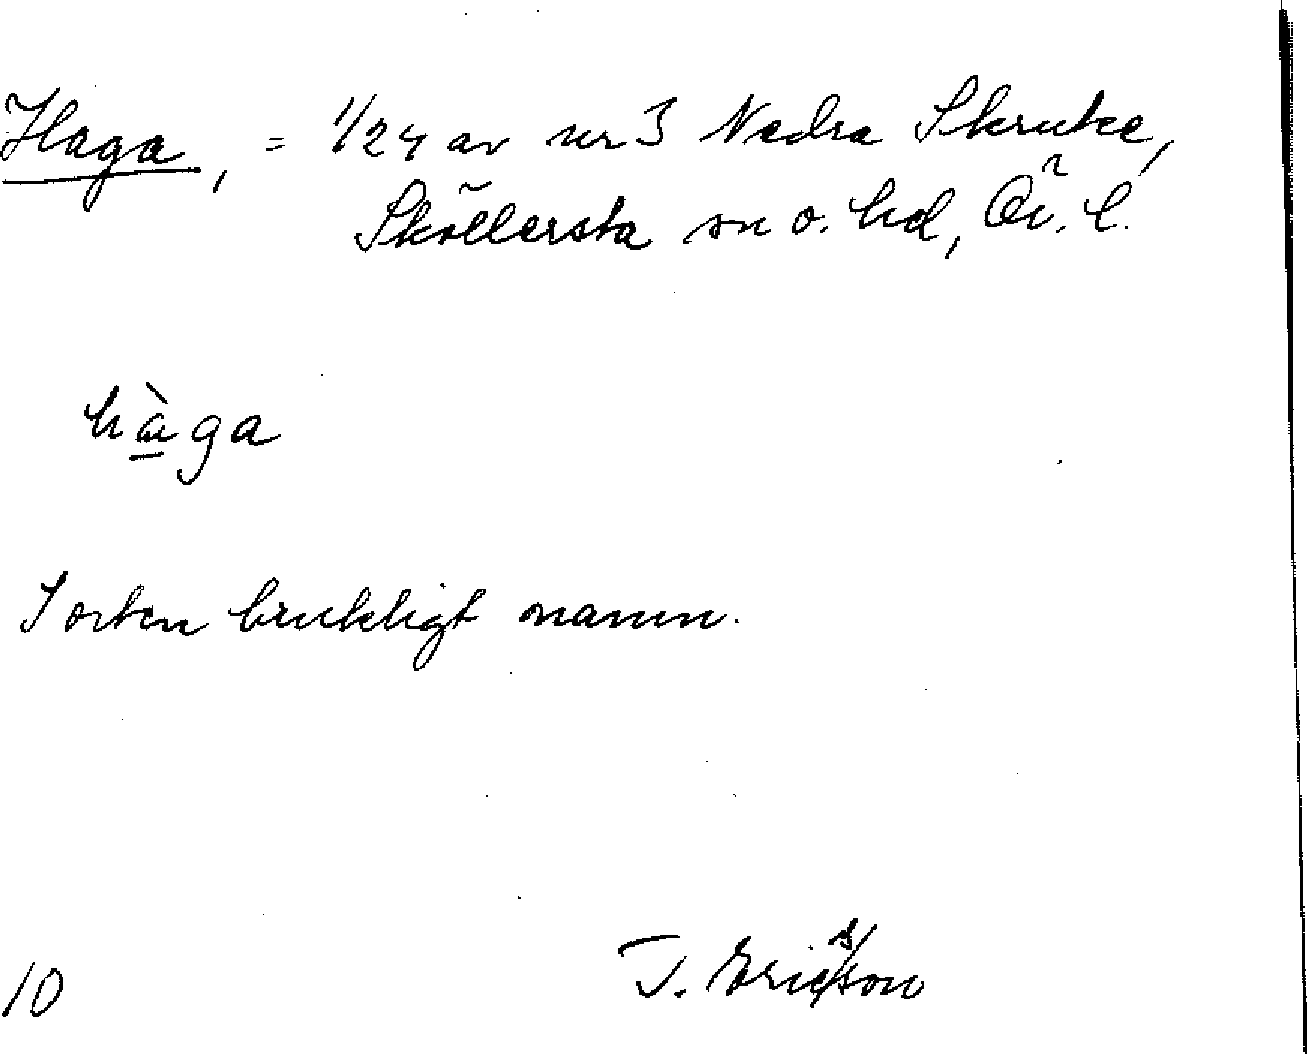 Haga, = 1/24 av nr 3 Nedra Skruke,
Sköllersta sn o. hd, Ör. l.
hàga
I orten brukligt namn.
10
T. Ericsson